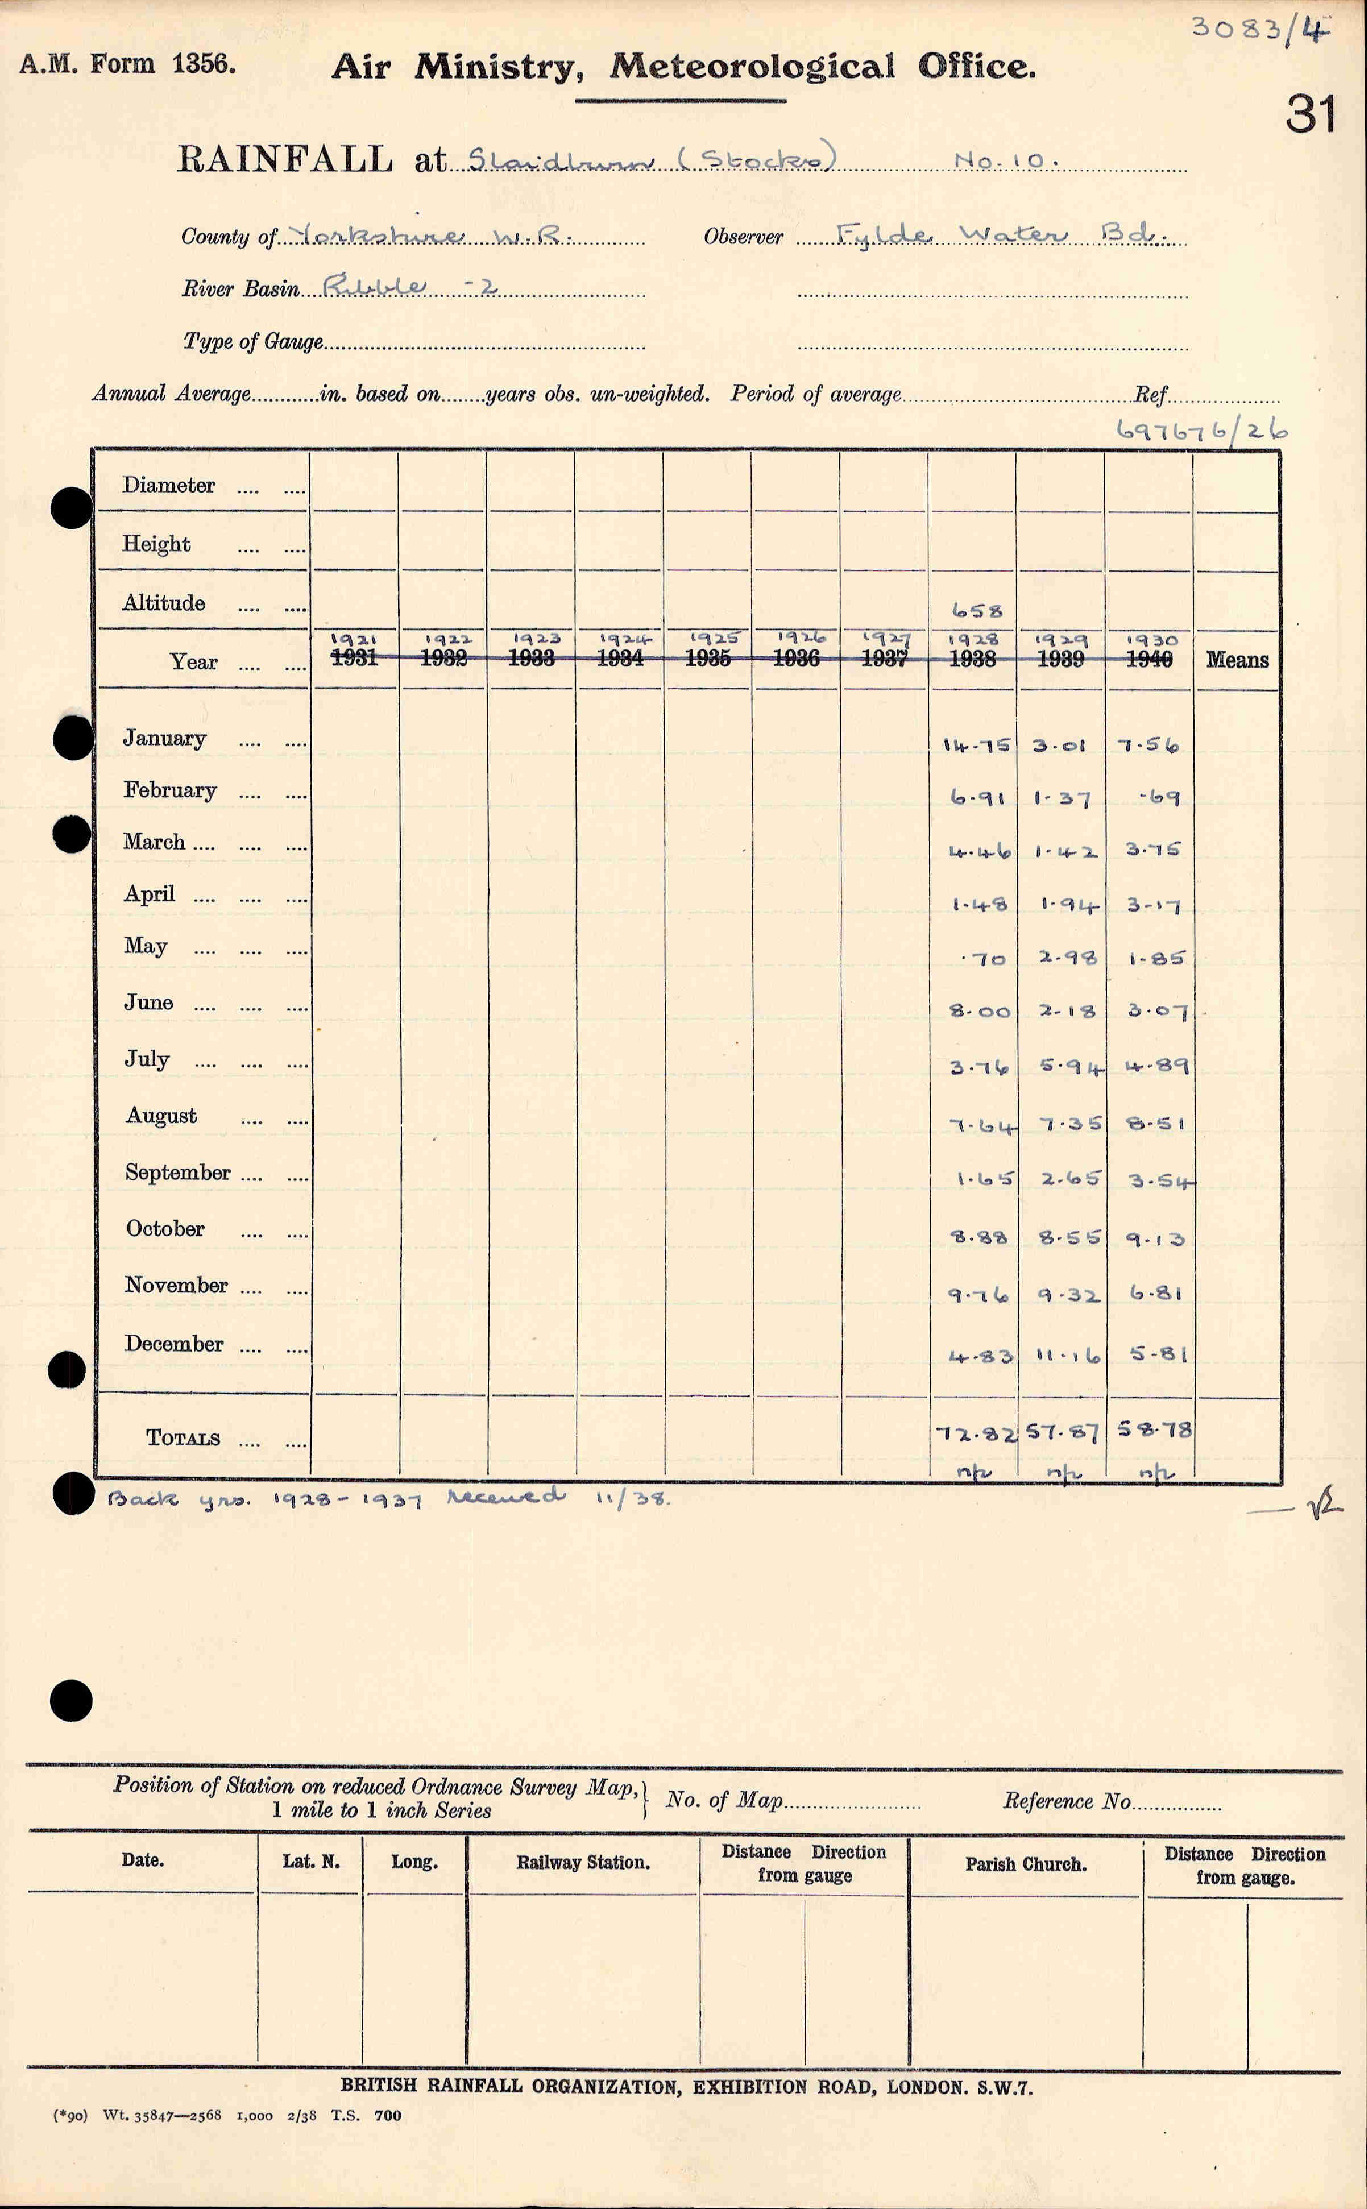 3083/4
A.M. Form 1356. Air Ministry, Meteorological Office.
31
RAINFALL at Slaidburn (Stocks) No. 10.
County of Yorkshire W.R. Observer Fylde Water Bd.
River Basin Ribble -2
Type of Gauge
Annual Average in. based on years obs. un-weighted. Period of average Ref
697676/26
Diameter .... ....
Height .... ....
Altitude .... .... 658
1921 1922 1923 1924 1925 1926 1927 1928 1929 1930
Year .... .... 1931 1932 1933 1934 1935 1936 1937 1938 1939 1940 Means
January .... .... 14.75 3.01 7.56
February .... .... 6.91 1.37 .69
March .... .... .... 4.46 1.42 3.75
April .... .... .... 1.48 1.94 3.17
May .... .... .... .70 2.98 1.85
June .... .... .... 8.00 2.18 3.07
July .... .... .... 3.76 5.94 4.89
August .... .... 7.64 7.35 8.51
September .... .... 1.65 2.65 3.54
October .... .... 8.88 8.55 9.13
November .... .... 9.76 9.32 6.81
December .... .... 4.83 11.16 5.81
TOTALS .... .... 72.82 57.87 58.78
np np np
Back yrs. 1928-1937 received 11/38.
Position of Station on reduced Ordnance Survey Map,} No. of Map Reference No
1 mile to 1 inch Series
Date. Lat. N. Long. Railway Station. Distance Direction from gauge Parish Church. Distance Direction from gauge.
BRITISH RAINFALL ORGANIZATION, EXHIBITION ROAD, LONDON. S.W.7.
(*90) Wt. 35847—2568 1,000 2/38 T.S. 700